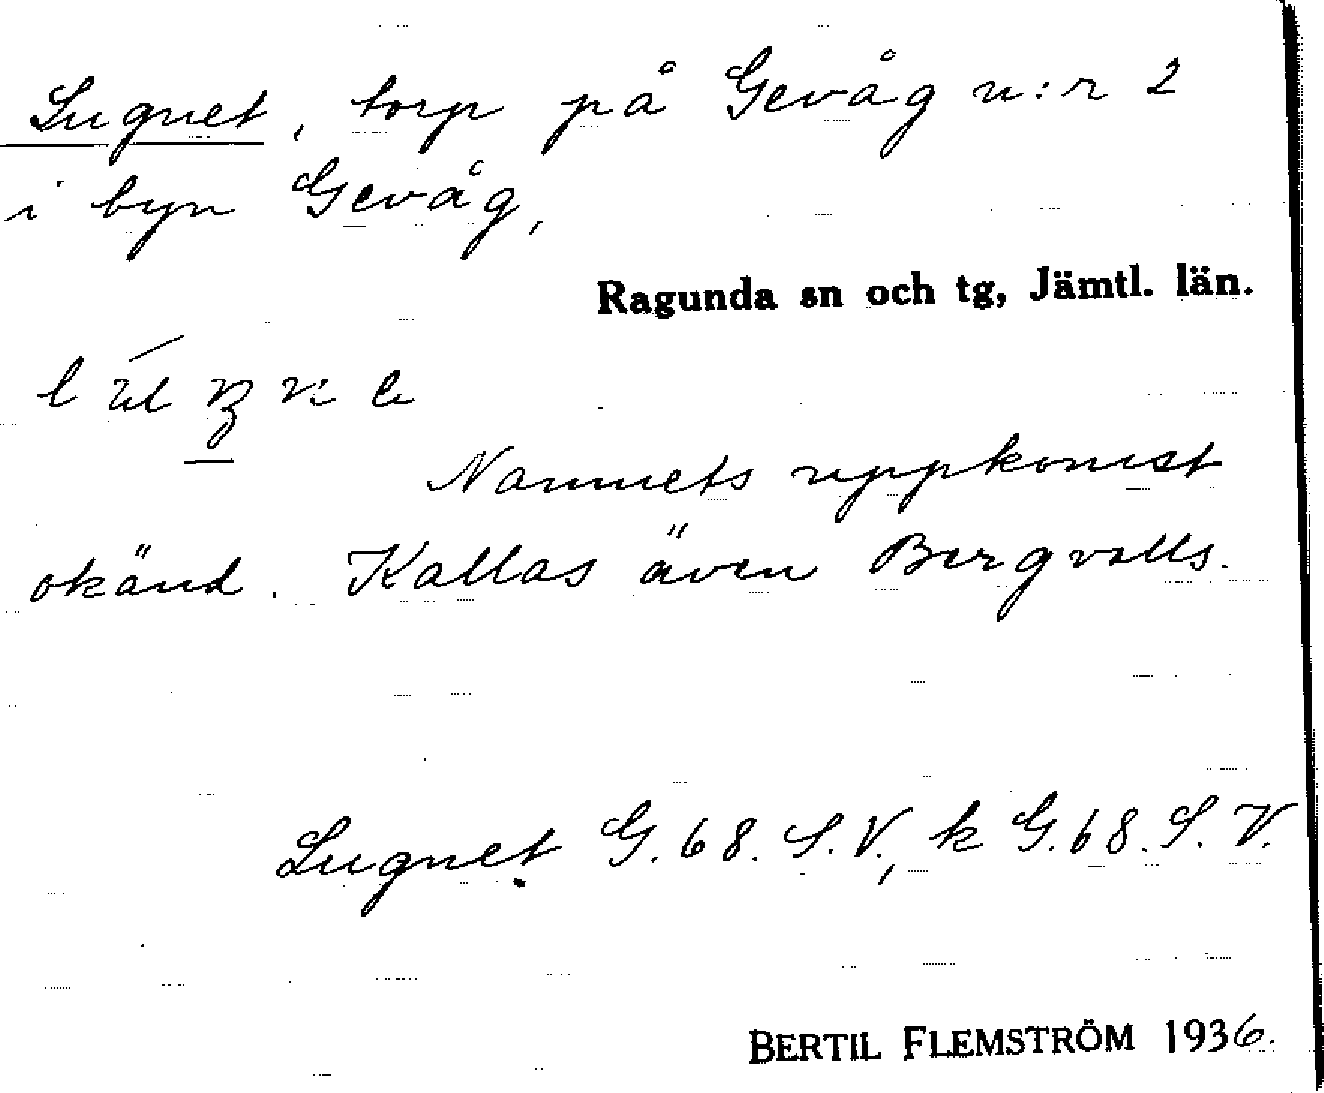 Lugnet, torp på Gevåg n:r 2
i byn Gevåg,
Ragunda sn och tg, Jämtl. län.
Namnets uppkomst
okänd. Kallas även Bergvalls.
Lugnet G. 68. S. V., k G. 68. S. V.
BERTIL FLEMSTRÖM 1936.